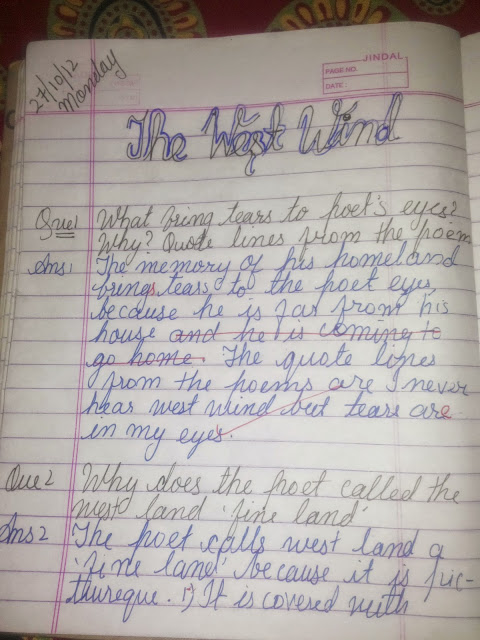 27/10/12
Monday
JINDAL
PAGE NO.
DATE :
The West Wind
Que1 What bring tears to poet's eyes?
Why? Quote lines from the poem
Ans1 The memory of his homeland
brings tears to the poet eyes,
because he is far from his
house and he is coming to
go home. The quote lines
from the poems are I never
hear west wind but tears are
in my eyes.
Que2 Why does the poet called the
west land 'fine land'
Ans2 The poet calls west land a
'fine land' because it is pic-
thureque. 1) It is covered with